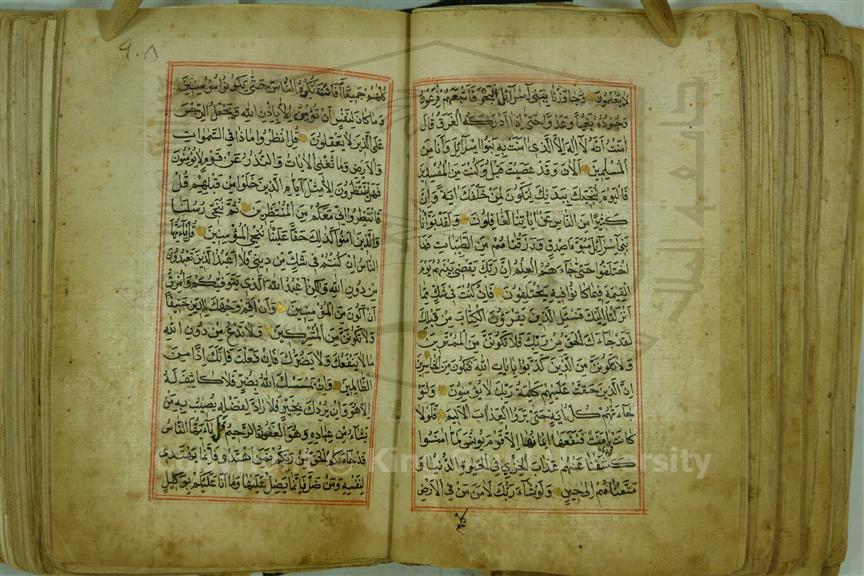 لا يعلمون وجاوزنا ببني اسرائيل البحر فاتبعهم فرعون
وجنوده بغيا وعدوا حتى اذا ادركه الغرق قال
امنت انه لا اله الا الذي امنت به بنوا اسرائيل وانا من
المسلمين الان وقد عصيت قبل وكنت من المفسدين
فاليوم ننجيك ببدنك لتكون لمن خلفك اية وان
كثيرا من الناس عن اياتنا لغافلون ولقد بوانا
بني اسرائيل مبوا صدق ورزقناهم من الطيبات فما
اختلفوا حتى جاءهم العلم ان ربك يقضي بينهم يوم
القيمة فيما كانوا فيه يختلفون فان كنت في شك مما
انزلنا اليك فسئل الذين يقرؤن الكتاب من قبلك
لقد جاءك الحق من ربك فلا تكونن من الممترين
ولا تكونن من الذين كذبوا بايات الله فتكون من الخاسرين
ان الذين حقت عليهم كلمة ربك لا يؤمنون ولو
جاءتهم كل اية حتى يروا العذاب الاليم فلولا
كانت قرية امنت فنفعها ايمانها الا قوم يونس لما امنوا
كشفنا عنهم عذاب الخزي في الحيوة الدنيا و
متعناهم الى حين ولو شاء ربك لامن من في الارض
كلهم
كلهم جميعا افانت تكره الناس حتى يكونوا مؤمنين
وما كان لنفس ان تؤمن الا باذن الله ويجعل الرجس
على الذين لا يعقلون قل انظروا ماذا في السموات
والارض وما تغني الايات والنذر عن قوم لا يؤمنون
فهل ينتظرون الا مثل ايام الذين خلوا من قبلهم قل
فانتظروا اني معكم من المنتظرين ثم ننجي رسلنا
والذين امنوا كذلك حقا علينا ننجي المؤمنين قل يا ايها
الناس ان كنتم في شك من ديني فلا اعبد الذين تعبدون
من دون الله ولكن اعبد الله الذي يتوفيكم وامرت
ان اكون من المؤمنين وان اقم وجهك للدين حنيفا
ولا تكونن من المشركين ولا تدع من دون الله
ما لا ينفعك ولا يضرك فان فعلت فانك اذا من
الظالمين وان يمسسك الله بضر فلا كاشف له
الا هو وان يردك بخير فلا راد لفضله يصيب به من
يشاء من عباده وهو الغفور الرحيم قل يا ايها الناس
قد جاءكم الحق من ربكم فمن اهتدى فانما يهتدي
لنفسه ومن ضل فانما يضل عليها وما انا عليكم بوكيل